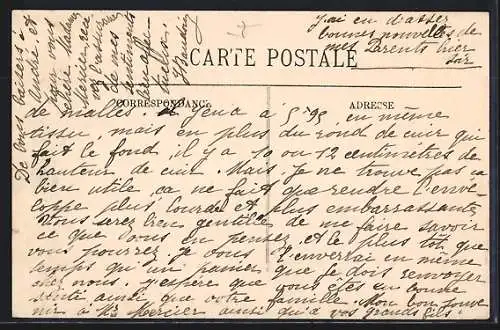 J'ai eu d'assez
bonnes nouvelles de
mes Parents hier
soir
CARTE POSTALE
CORRESPONDANCE
ADRESSE
de malles. Il y en a à 5f95, en même
tissu, mais en plus du rond de cuir qui
fait le fond, il y a 10 ou 12 centimètres de
hauteur de cuir. Mais je ne trouve pas ça
bien utile, ça ne fait que rendre l'enve
loppe plus lourde et plus embarrassante
Vous serez bien gentille de me faire savoir
ce que vous en pensez, et le plus tôt que
vous pourrez, je vous l'enverrai en même
temps qu'un panier que je dois renvoyer
chez nous. J'espère que vous êtes en bonne
santé ainsi que votre famille. Mon bon souve
nir à Mr Mercier ainsi qu'à vos grands fils.
De bons baisers à
André et
pour vous
chère Madame
Mercier,
de mes
sentiments